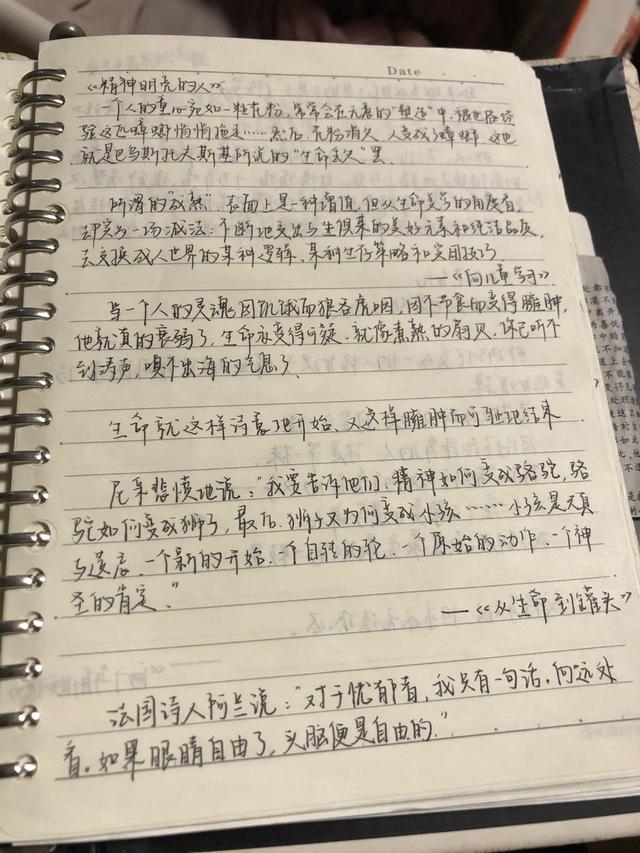 Date
《精神明亮的人》
一个人的童心宛如一粒花粉,常常会在无意的"塑造"中,被世故经
验这匹蟑螂悄悄拖走……然后,花粉消失,人变成了蟑螂.这也
就是巴乌斯托夫斯基所说的"生命丢失"罢.
所谓的"成熟",表面上是一种增值,但从生命美学的角度看,
却实为一场减法:不断地交出与生俱来的美好元素和纯洁品质,
去交换成人世界的某种逻辑、某种生存策略和实用技巧.
—《向儿童学习》.
当一个人的灵魂因饥饿而狼吞虎咽,因不节食而变得臃肿,
他就真的衰弱了,生命亦变得可疑.就像煮熟的扇贝,你已听不
到涛声,嗅不出海的气息了.
生命就这样诗意地开始、又这样臃肿而可耻地结束
尼采悲愤地说:"我要告诉他们,精神如何变成骆驼,骆
驼如何变成狮子,最后,狮子又为何变成小孩……小孩是天真
与遗忘、一个新的开始、一个自转的轮、一个原始的动作、一个神
圣的肯定."
—《从生命到罐头》
法国诗人阿兰说:"对于忧郁者,我只有一句话,向远处
看。如果眼睛自由了,头脑便是自由的."